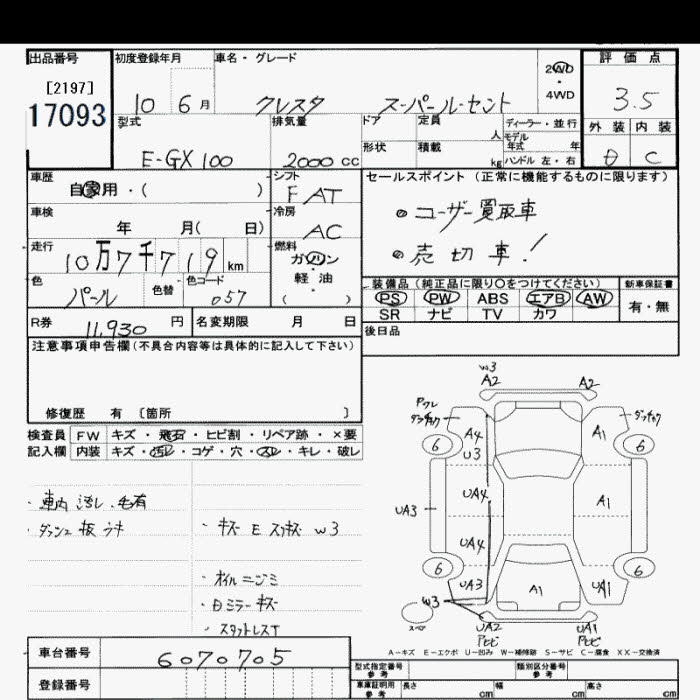 出品番号 初度登録年月 車名・グレード 2WD・4WD 評価点
[2197]
17093 10 6月 クレスタ スーパールーセント 3.5
型式 排気量 ドア 定員 人 ディーラー・並行 外装 内装
モデル年式 年
E-GX100 2000cc 形状 積載 kg ハンドル 左・右 C
車歴 自家用・( ) シフト F AT セールスポイント (正常に機能するものに限ります)
車検 年 月( 日) 冷房 AC ・ユーザー買取車
走行 10万7千719km 燃料 ガソリン ・売切車!
軽・油
( )
色 パール 色替 色コード 057 装備品(純正品に限り○をつけてください) 新車保証書
PS PW ABS エアB AW 有・無
SR ナビ TV カワ
R券 11,930円 名変期限 月 日 後日品
注意事項申告欄(不具合内容等は具体的に記入して下さい)
修復歴 有 〔箇所 〕
検査員 FW キズ・飛石・ヒビ割・リペア跡・×要
記入欄 内装 キズ・汚れ・コゲ・穴・スレ・キレ・破レ
・車内汚レ.毛有
・ダッシュ板ウキ
・キズ E スリキズ W3
・オイルニジミ
・日ミラーキズ
・スタットレスT
W3
A2 A2
A4 A1
U3
6 6
UA3 UA4 A1
UA4
6 6
UA3 A1 UA1
W3
スペア UA2 UA1
A-キズ E-エクボ U-凹み W-補修跡 S-サビ C-腐食 XX-交換済
車台番号 6070705
登録番号
型式指定番号 参考 類別区分番号 参考
車庫証明用 参考 長さ cm 幅 cm 高さ cm